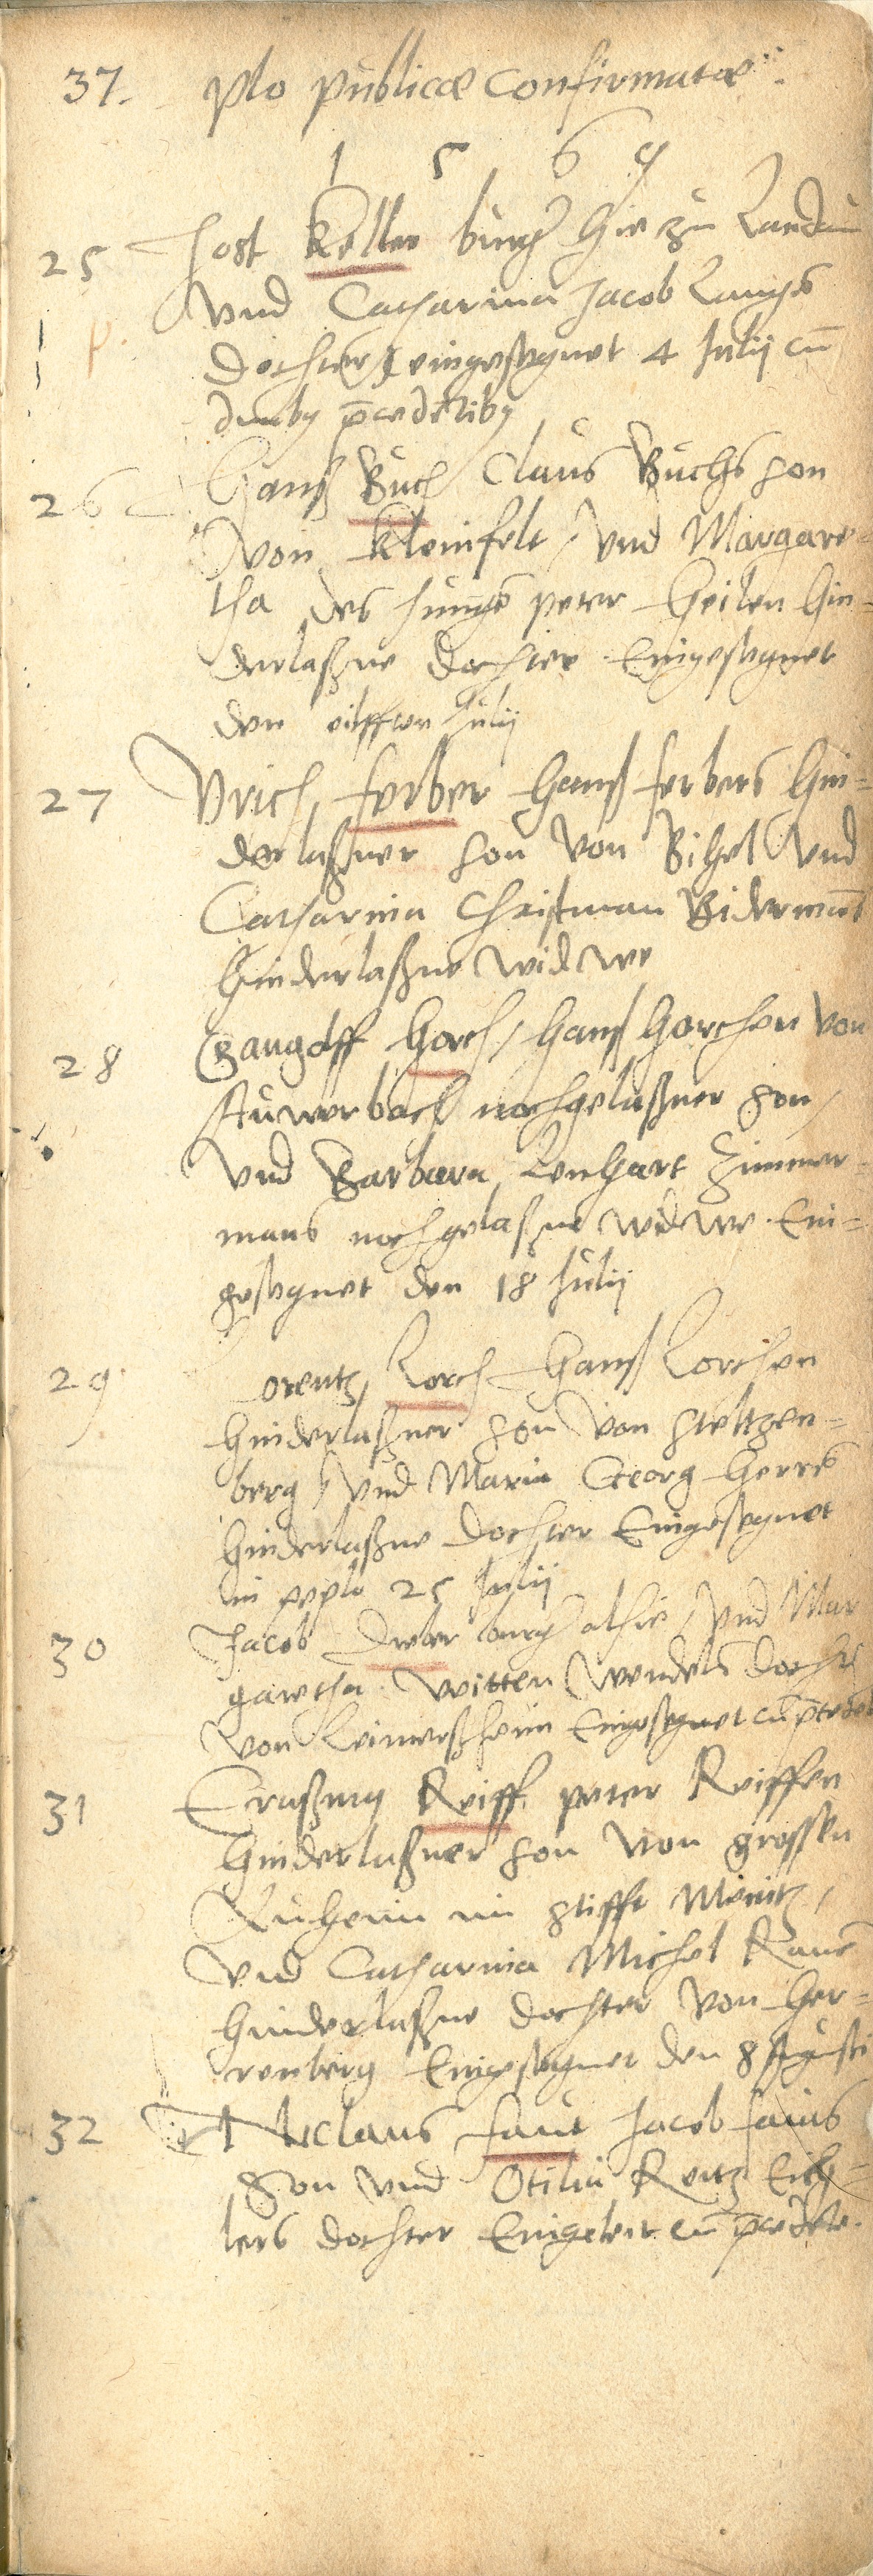 37. plo publicae confirmatae
1 5 6 9
25 Jost Keller burger hie zu Landau
vnd Catharina Jacob Langs
Dochter eingesegnet 4 Julij cū
duoby p̄cedētiby
26 Hanß Buch Claus Buchs son
von Kleinfelt / vnd Margare-
tha des jungē peter Heilen hin-
derlaßne dochter Eingesegnet
den eilfften Julij
27 Vrich ferber Hanß ferbers hin-
derlaßner son von Bihel vnd
Catharina Christman Bidermās
hinderlaßne widwe
28 Gangolff Horch / Hanß Horchen von
Auwerbach nachgelaßner son /
vnd Barbara Lenhart Zimmer-
mans nachgelaßne widwe Ein-
gesegnet den 18 Julij
29 Lorentz Lorch Hanß Lorchen
hinderlaßner son von steltzen-
berg / vnd Maria Georg Herrē
hinderlaßne dochter Eingesegnet
in peplo 25 Julij
30 Jacob burger alhie / vnd Mar
garetha witten wendels docht
von Leimerßheim Eingesegnet cū
31 Eraßmy Reiff peter Reiffen
hinderlaßner son von grossen
im stifft Meintz /
vnd Catharina Michel
hinderlaßne dochter von Her-
renberg Eingesegnet den 8 Augusti
32 Niclaus faut Jacob fauts
Son vnd Otilia Reitz Eich-
lers dochter Eingeleit cū p̄cedēte.